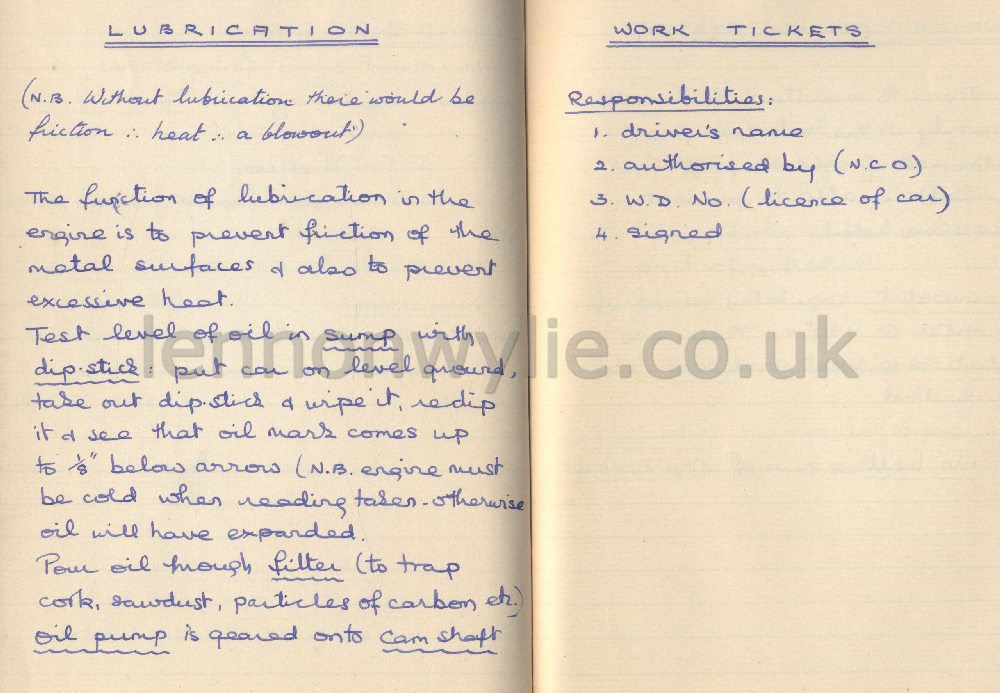 LUBRICATION
(N.B. Without lubrication there would be
friction ∴ heat ∴ a blowout!)
The function of lubrication in the
engine is to prevent friction of the
metal surfaces & also to prevent
excessive heat.
Test level of oil in sump with
dip-stick: put car on level ground,
take out dip-stick & wipe it, redip
it & see that oil mark comes up
to 1/8" below arrow (N.B. engine must
be cold when reading taken - otherwise
oil will have expanded.
Pour oil through filter (to trap
cork, sawdust, particles of carbon etc.)
Oil pump is geared onto cam shaft
WORK TICKETS
Responsibilities:
1. driver's name
2. authorised by (N.C.O)
3. W.D. No. (licence of car)
4. signed
lennonwylie.co.uk